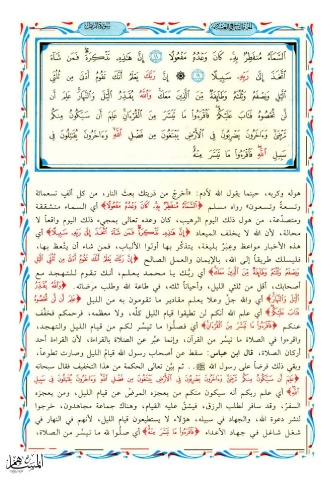 السَّمَآءُ مُنفَطِرٌ بِهِۦ كَانَ وَعْدُهُۥ مَفْعُولًا ۝ إِنَّ هَٰذِهِۦ تَذْكِرَةٌ فَمَن شَآءَ
اتَّخَذَ إِلَىٰ رَبِّهِۦ سَبِيلًا ۝ إِنَّ رَبَّكَ يَعْلَمُ أَنَّكَ تَقُومُ أَدْنَىٰ مِن ثُلُثَيِ
الَّيْلِ وَنِصْفَهُۥ وَثُلُثَهُۥ وَطَآئِفَةٌ مِّنَ الَّذِينَ مَعَكَ وَاللَّهُ يُقَدِّرُ الَّيْلَ وَالنَّهَارَ عَلِمَ أَن
لَّن تُحْصُوهُ فَتَابَ عَلَيْكُمْ فَاقْرَءُوا مَا تَيَسَّرَ مِنَ الْقُرْءَانِ عَلِمَ أَن سَيَكُونُ مِنكُم
مَّرْضَىٰ وَءَاخَرُونَ يَضْرِبُونَ فِي الْأَرْضِ يَبْتَغُونَ مِن فَضْلِ اللَّهِ وَءَاخَرُونَ يُقَاتِلُونَ فِي
سَبِيلِ اللَّهِ فَاقْرَءُوا مَا تَيَسَّرَ مِنْهُ
هوله وكربه، حينما يقول الله لآدم: «أخرج من ذريتك بعث النار، من كل ألف تسعمائة
وتسعة وتسعون» رواه مسلم ﴿السَّمَآءُ مُنفَطِرٌ بِهِۦ كَانَ وَعْدُهُۥ مَفْعُولًا﴾ أي السماء متشققة
ومتصدّعة، من هول ذلك اليوم الرهيب، كان وعده تعالى بمجيء ذلك اليوم واقعاً لا
محالة، لأن الله لا يخلف الميعاد ﴿إِنَّ هَٰذِهِۦ تَذْكِرَةٌ فَمَن شَآءَ اتَّخَذَ إِلَىٰ رَبِّهِۦ سَبِيلًا﴾ أي
هذه الأخبار مواعظ وعبرٌ بليغة، يتذكّر بها أولوا الألباب، فمن شاء أن يتّعظ بها،
فليسلك طريقاً إلى الله، بالإيمان والعمل الصالح ﴿إِنَّ رَبَّكَ يَعْلَمُ أَنَّكَ تَقُومُ أَدْنَىٰ مِن ثُلُثَيِ الَّيْلِ
وَنِصْفَهُۥ وَثُلُثَهُۥ وَطَآئِفَةٌ مِّنَ الَّذِينَ مَعَكَ﴾ أي ربُّك يا محمد يعلم، أنك تقوم للتهجد مع
أصحابك، أقل من ثلثي الليل، وأحياناً ثلثه، في طاعة الله وطلب مرضاته ﴿وَاللَّهُ يُقَدِّرُ
الَّيْلَ وَالنَّهَارَ﴾ أي والله جلَّ وعلا يعلم مقادير ما تقومون به من الليل ﴿عَلِمَ أَن لَّن تُحْصُوهُ
فَتَابَ عَلَيْكُمْ﴾ أي علم الله أنكم لن تطيقوا قيام الليل كلّه، ولا معظمه، فرحمكم فخفّف
عنكم ﴿فَاقْرَءُوا مَا تَيَسَّرَ مِنَ الْقُرْءَانِ﴾ أي فصلّوا ما تيسّر لكم من قيام الليل والتهجد،
واقرءوا في الصلاة ما تيسّر من القرآن، وإنما عبَّر عن الصلاة بالقراءة، لأن القراءة أحد
أركان الصلاة، قال ابن عباس: سقط عن أصحاب رسول الله قيامُ الليل وصارت تطوعاً،
وبقي ذلك فرضاً على رسول الله ﷺ.. ثم بيَّن تعالى الحكمة من هذا التخفيف فقال سبحانه
﴿عَلِمَ أَن سَيَكُونُ مِنكُم مَّرْضَىٰ وَءَاخَرُونَ يَضْرِبُونَ فِي الْأَرْضِ يَبْتَغُونَ مِن فَضْلِ اللَّهِ وَءَاخَرُونَ يُقَاتِلُونَ فِي سَبِيلِ
اللَّهِ﴾ أي علم ربكم أنه سيكون منكم من يعجزه المرض عن قيام الليل، ومن يعجزه
السفر، وقد سافر لطلب الرزق، فيشقُّ عليه القيام، وهناك جماعة مجاهدون، خرجوا
لنشر دعوة الله، والجهاد في سبيله، هؤلاء لا يستطيعون قيام الليل، لأنهم في النهار في
شغل شاغل في جهاد الأعداء ﴿فَاقْرَءُوا مَا تَيَسَّرَ مِنْهُ﴾ أي صلّوا لله ما تيسّر من الصلاة،